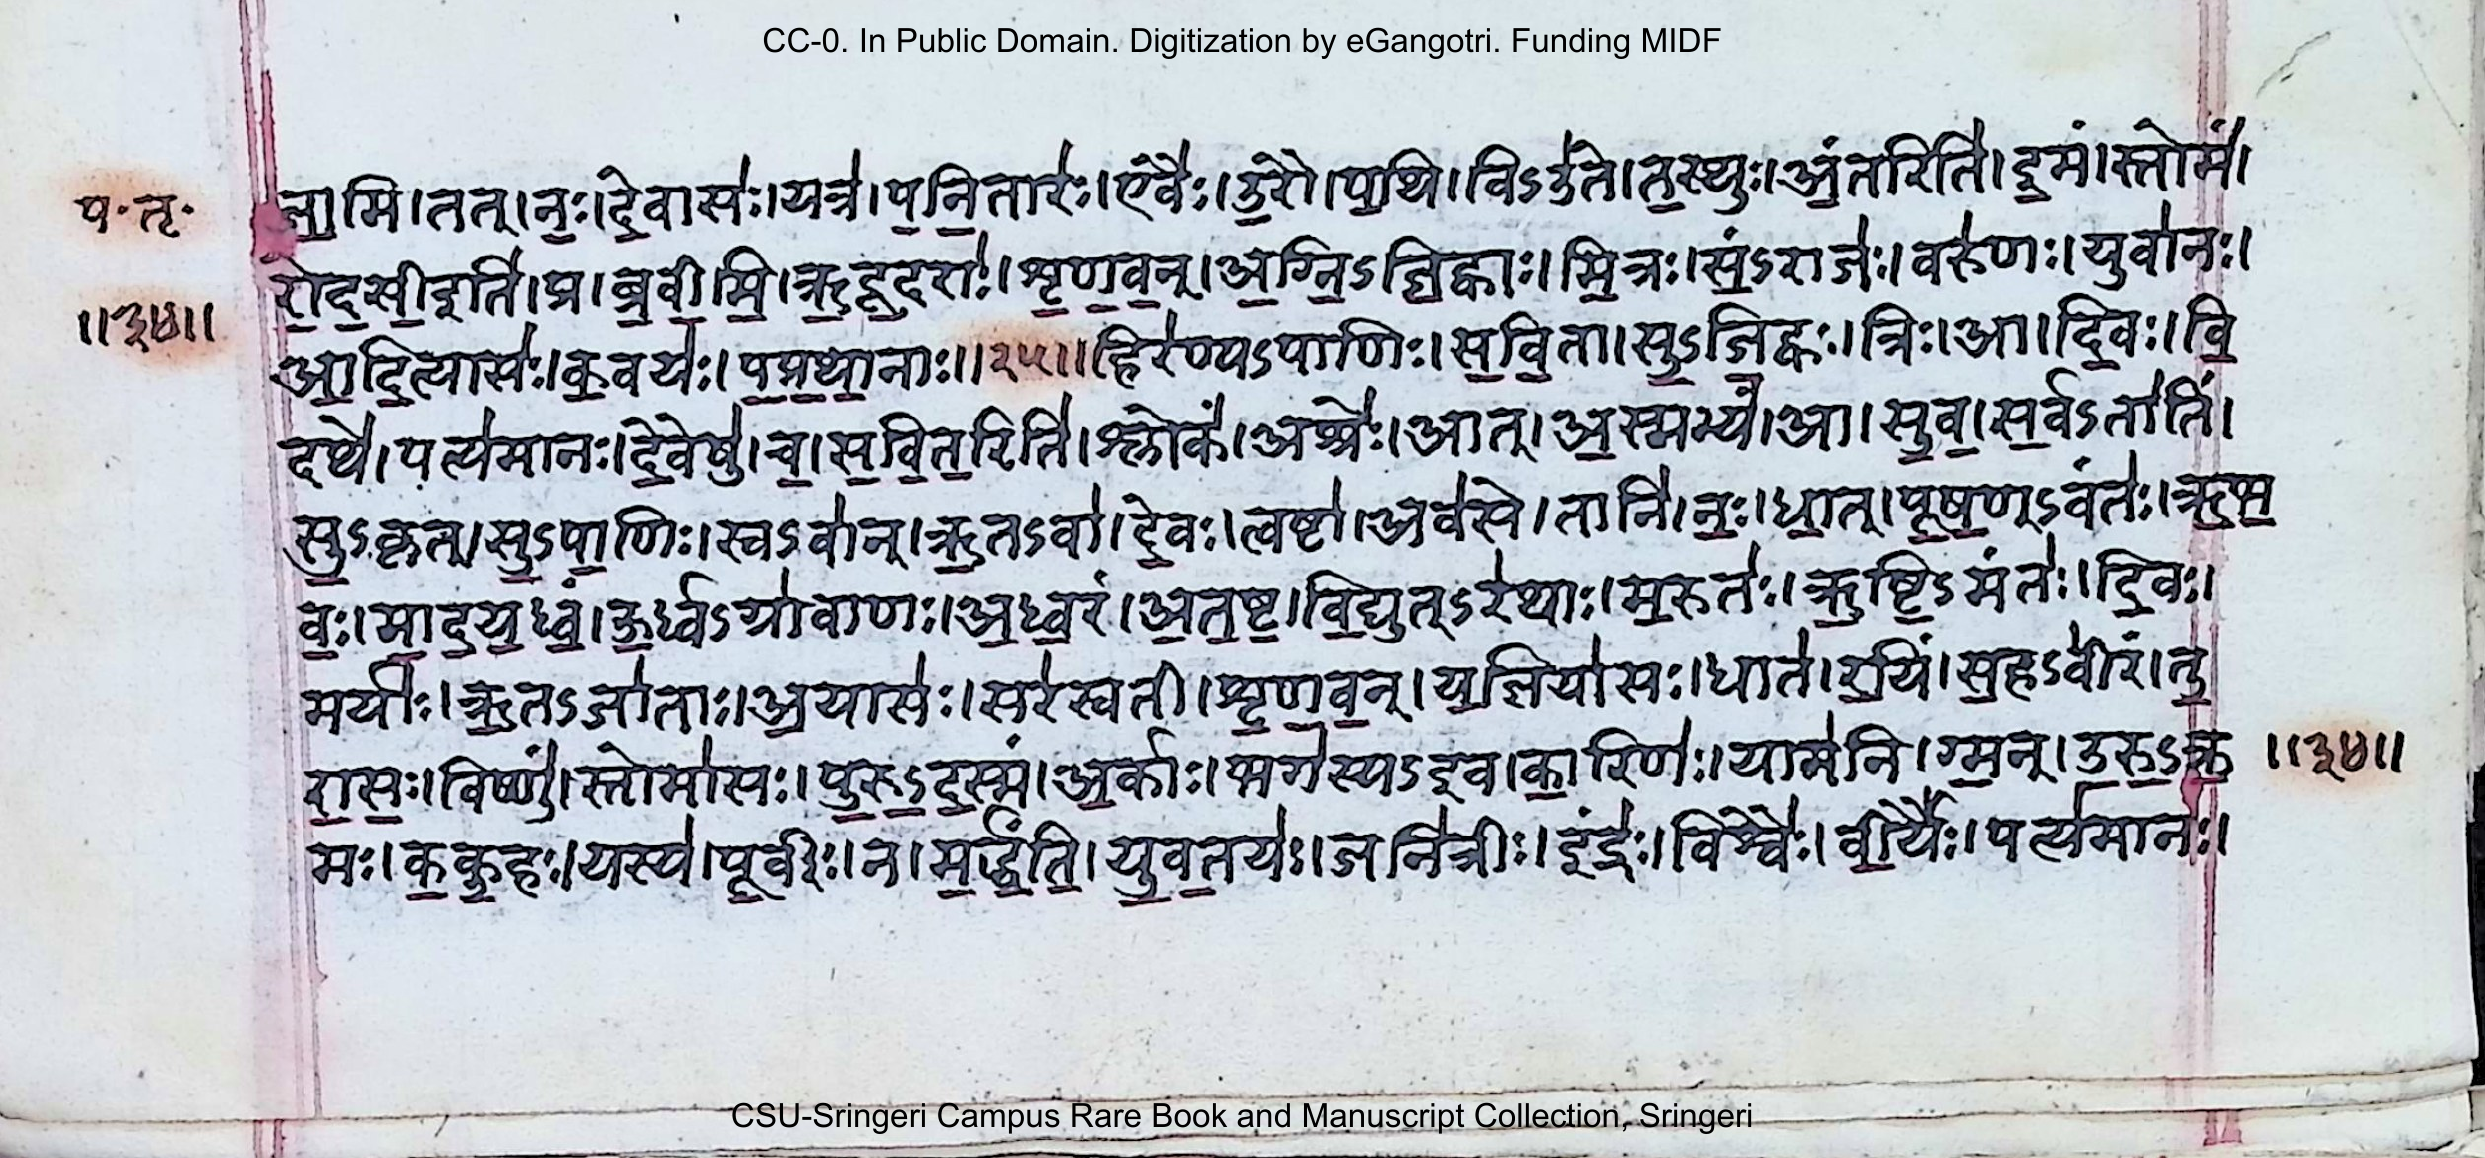 CC-0. In Public Domain. Digitization by eGangotri. Funding MIDF
प॰ तृ॰
॥३४॥
ना॒मि । तत् । नः॒ । दे॒वासः॑ । यत्र॑ । प॒नि॒तारः॑ । एवैः॑ । उ॒रौ । प॒थि । विऽउ॑ते । त॒स्थुः । अं॒तरिति॑ । इ॒मं । स्तोमं॑ ।
रो॒द॒सी॒ इति॑ । प्र । ब्र॒वी॒मि॒ । ऋ॒दू॒दराः॑ । शृ॒ण॒व॒न् । अ॒ग्नि॒ऽजि॒ह्वाः । मि॒त्रः । सं॒ऽराजः॑ । वरु॑णः । युवा॑नः ।
आ॒दि॒त्यासः॑ । क॒वयः॑ । प॒प्र॒था॒नाः ॥२५॥ हिर॑ण्यऽपाणिः । स॒वि॒ता । सु॒ऽजि॒ह्वः । त्रिः । आ । दि॒वः । वि॒
दथे॑ । पत्य॑मानः । दे॒वेषु॑ । च॒ । स॒वि॒त॒रिति॑ । श्लोकं॑ । अश्रेः॑ । आत् । अ॒स्मभ्यं॑ । आ । सु॒व॒ । स॒र्वऽता॑तिं ।
सु॒ऽकृत् । सु॒ऽपा॒णिः । स्वऽवा॑न् । ऋ॒तऽवा॑ । दे॒वः । त्वष्टा॑ । अव॑से । तानि॑ । नः॒ । धा॒त् । पू॒ष॒ण्ऽवंतः॑ । ऋ॒भ॒
वः॒ । मा॒द॒य॒ध्वं॒ । ऊ॒र्ध्वऽग्रा॑वाणः । अ॒ध्व॒रं । अ॒त॒ष्ट॒ । वि॒द्युत्ऽर॑थाः । म॒रुतः॑ । ऋ॒ष्टि॒ऽमंतः॑ । दि॒वः ।
मर्याः॑ । ऋ॒तऽजा॑ताः । अ॒यासः॑ । सर॑स्वती । शृ॒ण॒व॒न् । य॒ज्ञिया॑सः । धात॑ । र॒यिं । स॒हऽवी॑रं । तु॒
रा॒सः॒ । विष्णुं॑ । स्तोमा॑सः । पु॒रु॒ऽद॒स्मं । अ॒र्काः । भग॑स्यऽइव । का॒रिणः॑ । याम॑नि । ग्म॒न् । उ॒रु॒ऽक्र॒
॥३४॥
मः । क॒कु॒हः । यस्य॑ । पू॒र्वीः । न । म॒र्द्धं॒ति॒ । यु॒व॒त॒यः॑ । जनि॑त्रीः । इंद्रः॑ । विश्वैः॑ । वी॒र्यैः॑ । पत्य॑मानः ।
CSU-Sringeri Campus Rare Book and Manuscript Collection, Sringeri